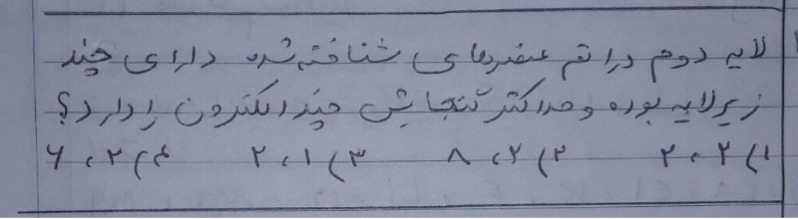 لایه دوم در اتم عنصرهای شناخته شده دارای چند
زیرلایه بوده و حداکثر گنجایش چند الکترون را دارد؟
۱) ۲ ، ۲ ۲) ۲ ، ۸ ۳) ۱ ، ۲ ۴) ۲ ، ۶